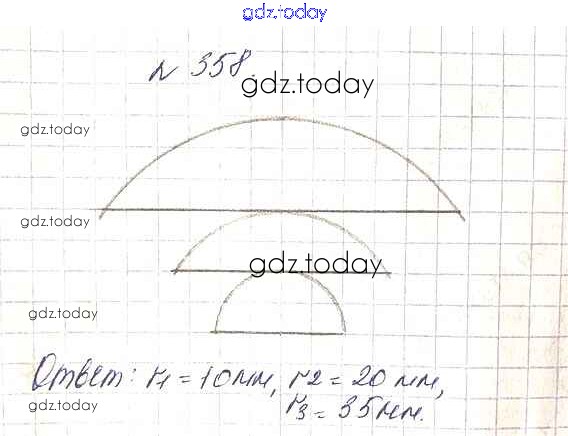 gdz.today
№ 358
gdz.today
gdz.today
gdz.today
gdz.today
gdz.today
Ответ: r1 = 10 мм, r2 = 20 мм,
r3 = 35 мм.
gdz.today